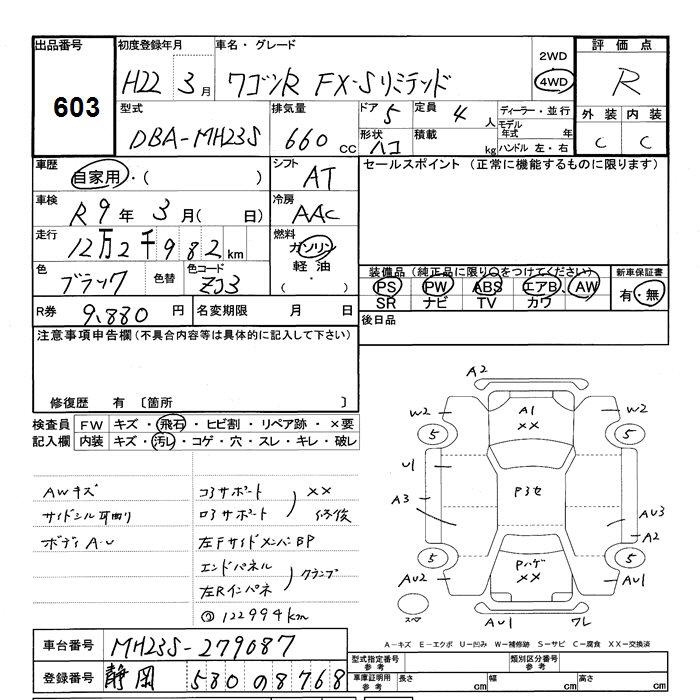 出品番号 初度登録年月 車名・グレード 評価点
603 H22年 3月 ワゴンR FX-Sリミテッド 2WD 4WD R
型式 排気量 ドア 5 定員 4人 ディーラー・並行 外装 内装
DBA-MH23S 660cc 形状 ハコ 積載 kg モデル年式 年 C C
ハンドル 左・右
車歴 自家用・( ) シフト AT セールスポイント (正常に機能するものに限ります)
車検 R9年 3月( 日) 冷房 AAC
走行 12万2千982km 燃料 ガソリン
色 ブラック 色替 色コード ZJ3 軽油
( ・ )
装備品(純正品に限り○をつけてください) 新車保証書
PS PW ABS エアB AW 有・無
SR ナビ TV カワ
R券 9,880円 名変期限 月 日 後日品
注意事項申告欄(不具合内容等は具体的に記入して下さい)
修復歴 有 〔箇所 〕
検査員 FW キズ・飛石・ヒビ割・リペア跡・×要
記入欄 内装 キズ・汚レ・コゲ・穴・スレ・キレ・破レ
AWキズ コアサポート XX
サイドシル 修復
ボディA-U 左FサイドメンバBP
エンドパネル クランプ
左Rインパネ
122994km
A2
W2 A1 XX W2
5 5
U1 P3セ
A3 AU3
A2
5 5
AU2 Pハゲ XX AU1
スペア AU1 ワレ
A-キズ E-エクボ U-凹み W-補修跡 S-サビ C-腐食 XX-交換済
車台番号 MH23S-279087 型式指定番号 参考 類別区分番号 参考
登録番号 静岡 580 の 8768 車庫証明用 参考 長さ cm 幅 cm 高さ cm